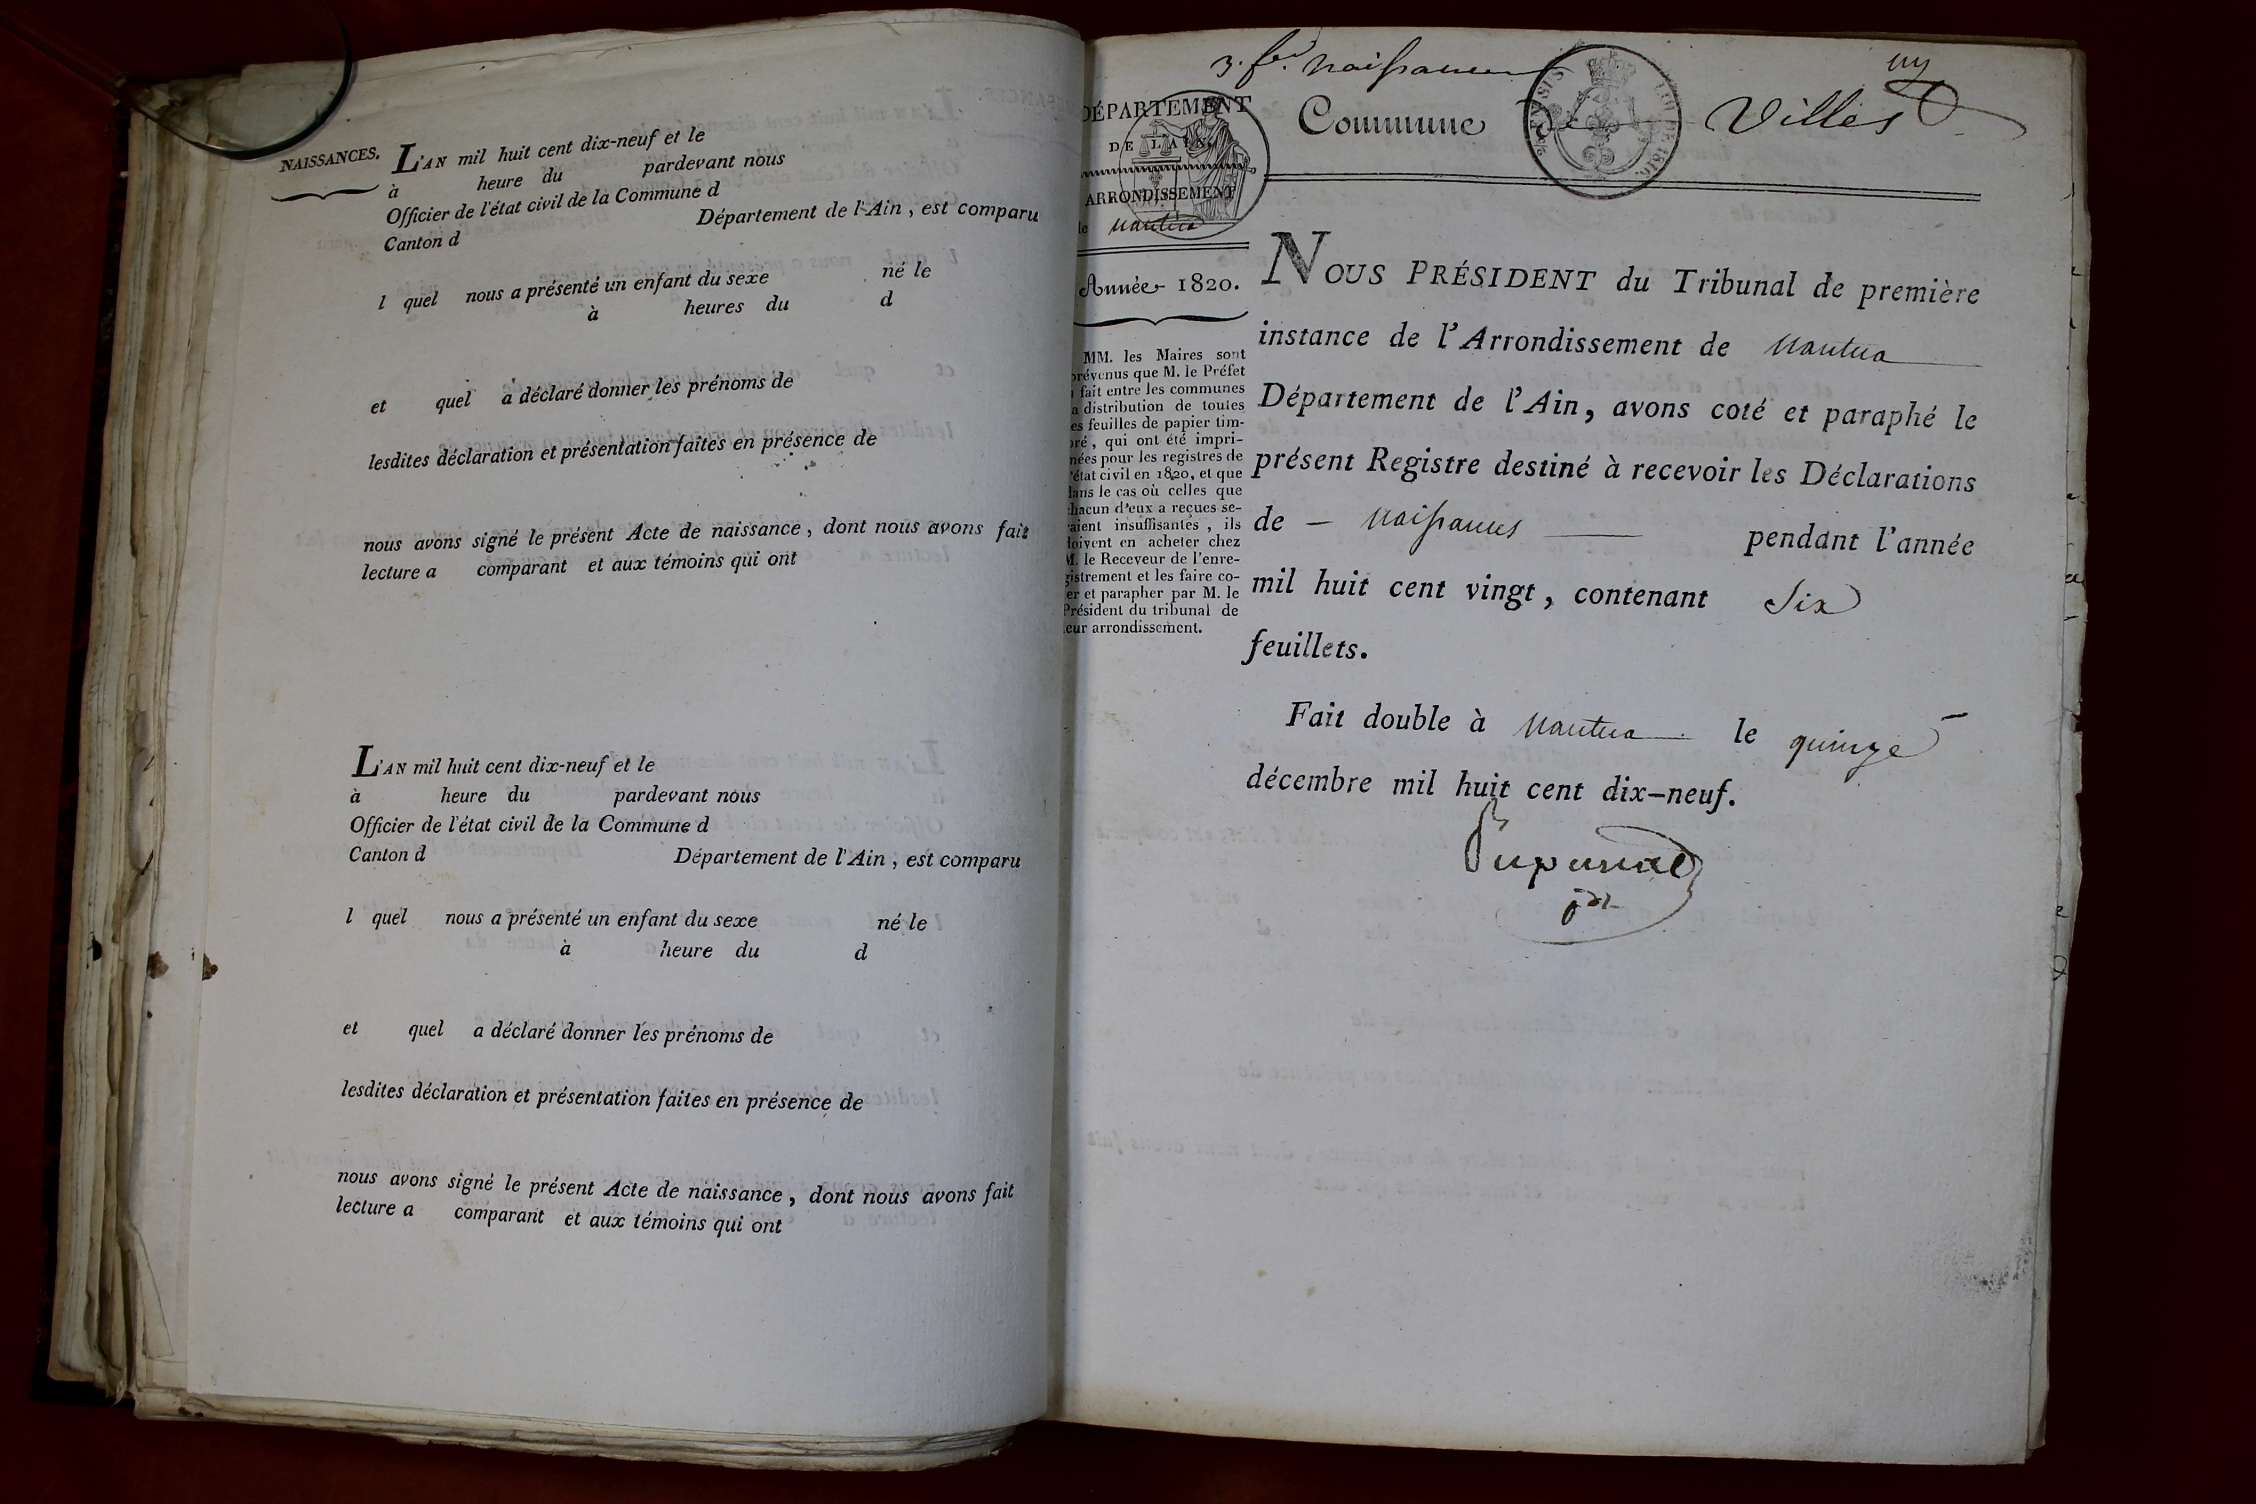 NAISSANCES.
L'AN mil huit cent dix-neuf et le
à heure du pardevant nous
Officier de l'état civil de la Commune d
Canton d Département de l'Ain, est comparu
l quel nous a présenté un enfant du sexe né le
à heures du d
et quel a déclaré donner les prénoms de
lesdites déclaration et présentation faites en présence de
nous avons signé le présent Acte de naissance, dont nous avons fait
lecture a comparant et aux témoins qui ont
L'AN mil huit cent dix-neuf et le
à heure du pardevant nous
Officier de l'état civil de la Commune d
Canton d Département de l'Ain, est comparu
l quel nous a présenté un enfant du sexe né le
à heure du d
et quel a déclaré donner les prénoms de
lesdites déclaration et présentation faites en présence de
nous avons signé le présent Acte de naissance, dont nous avons fait
lecture a comparant et aux témoins qui ont
naissances
DÉPARTEMENT
DE L'AIN.
ARRONDISSEMENT
de Nantua
Année 1820.
MM. les Maires sont
prévenus que M. le Préfet
a fait entre les communes
la distribution de toutes
les feuilles de papier tim-
bré, qui ont été impri-
mées pour les registres de
l'état civil en 1820, et que
dans le cas où celles que
chacun d'eux a reçues se-
raient insuffisantes, ils
doivent en acheter chez
M. le Receveur de l'enre-
gistrement et les faire co-
ter et parapher par M. le
Président du tribunal de
leur arrondissement.
Commune de Villes
NOUS PRÉSIDENT du Tribunal de première
instance de l'Arrondissement de Nantua
Département de l'Ain, avons coté et paraphé le
présent Registre destiné à recevoir les Déclarations
de — naissances — pendant l'année
mil huit cent vingt, contenant Six
feuillets.
Fait double à Nantua le quinze
décembre mil huit cent dix-neuf.